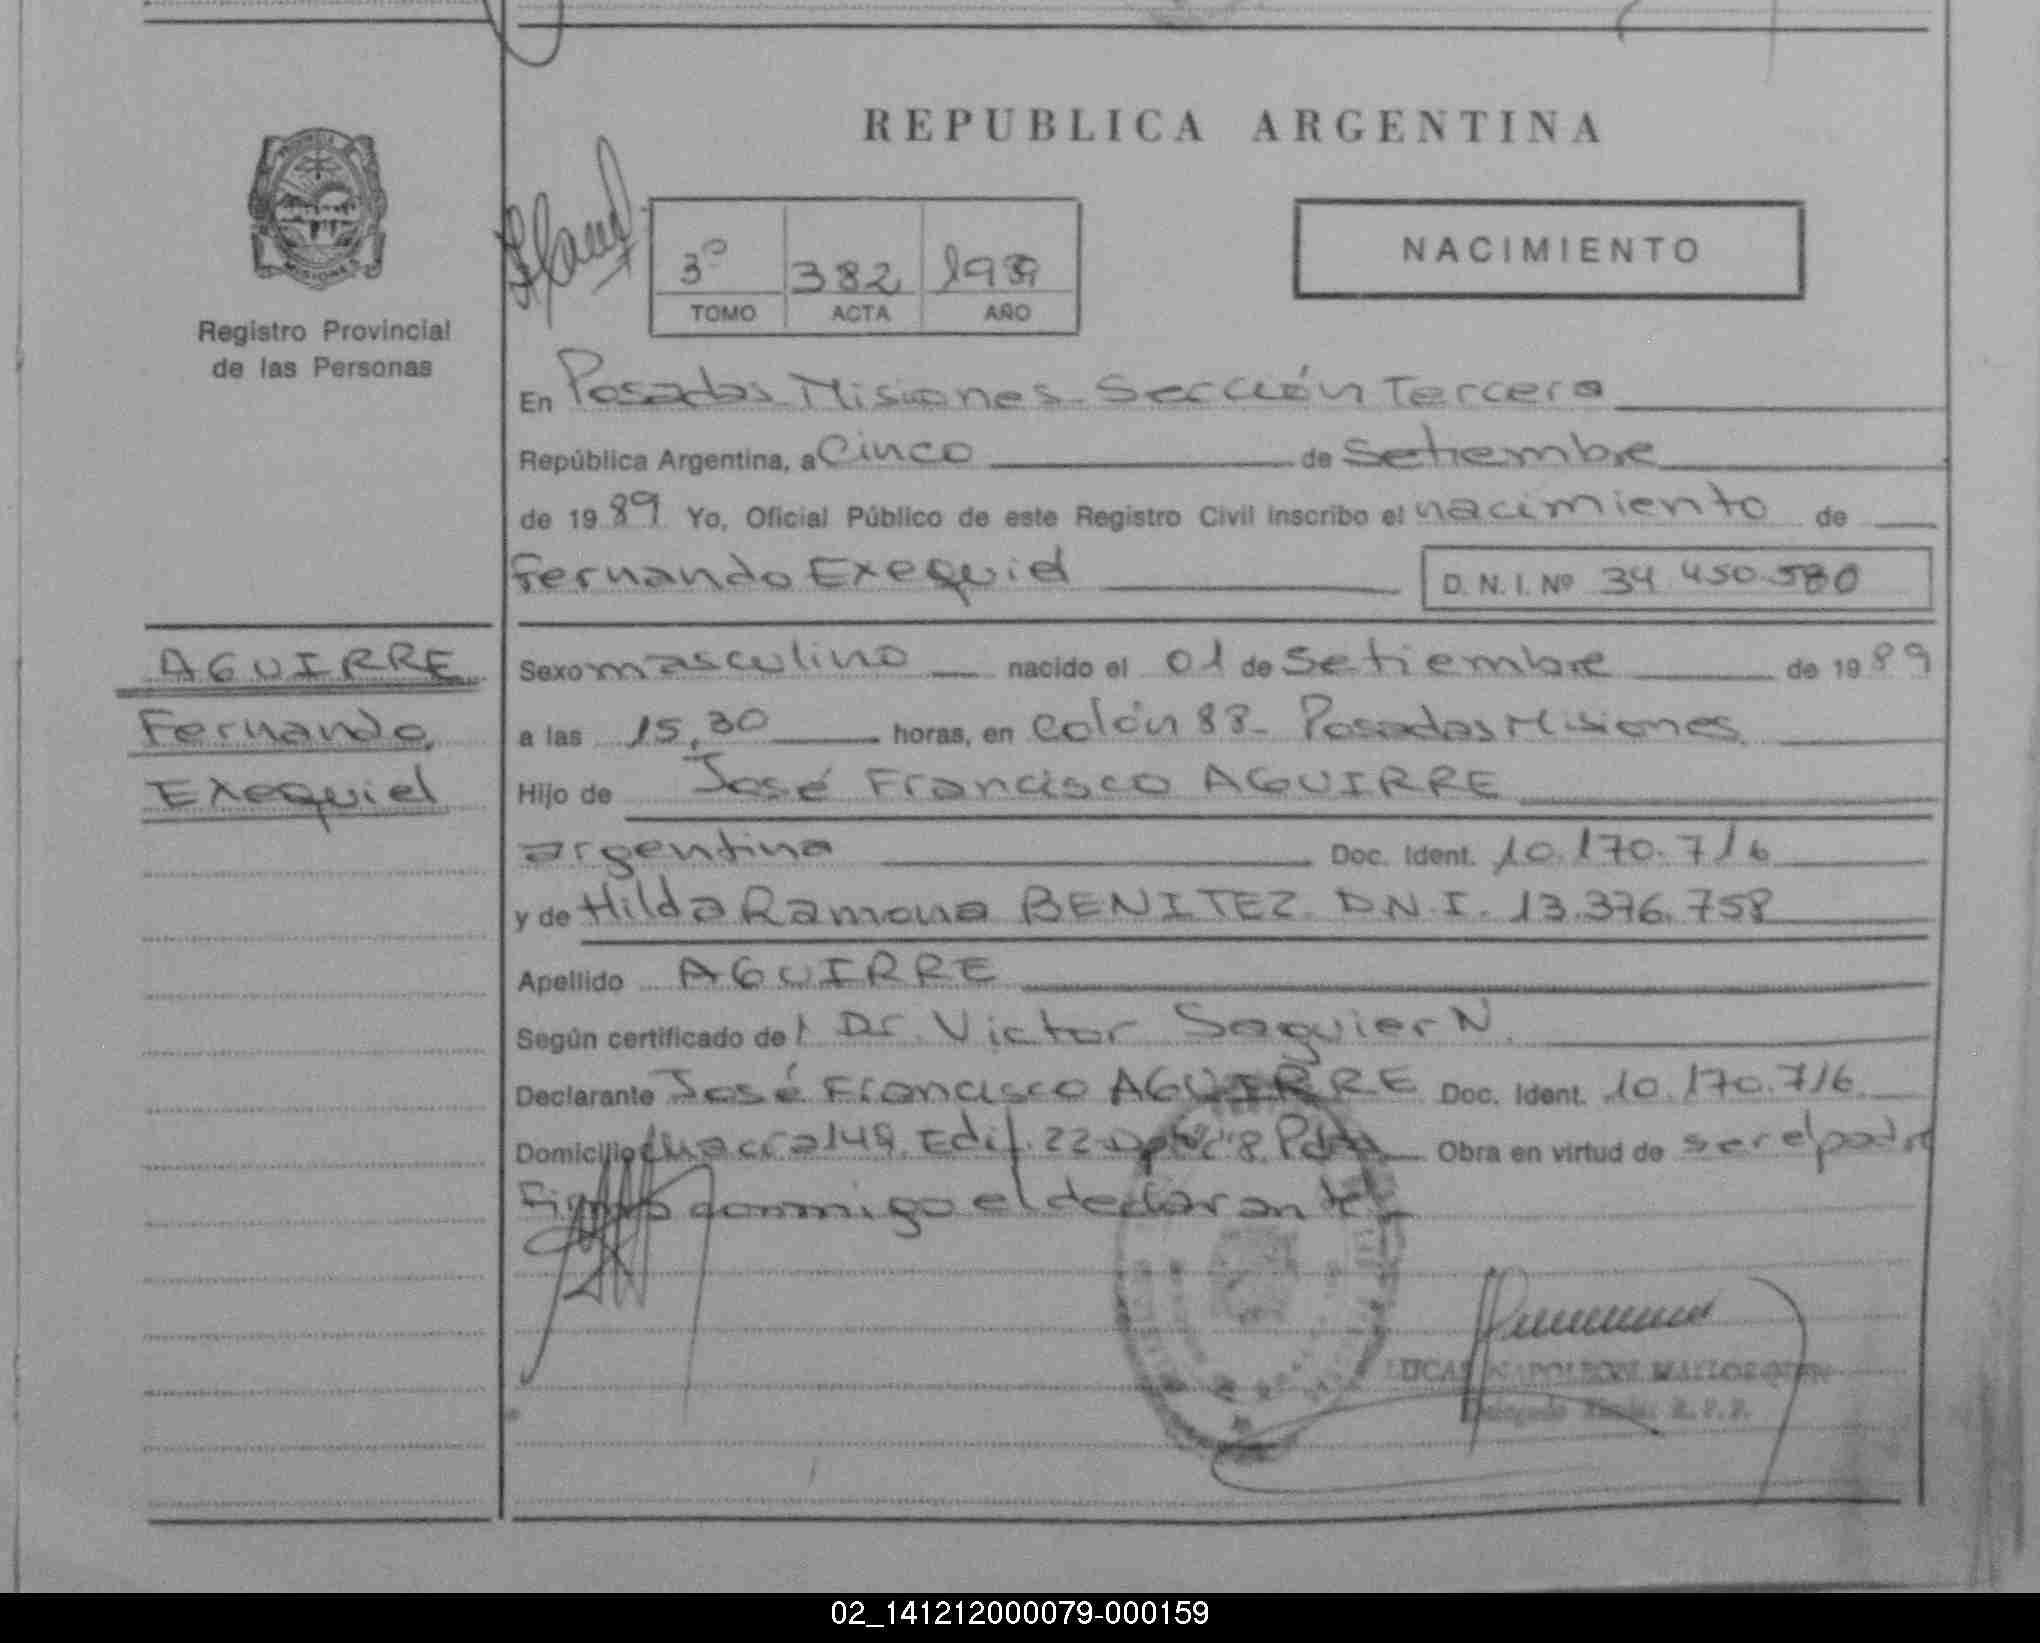 REPUBLICA ARGENTINA
NACIMIENTO
3º 382 1989
TOMO ACTA AÑO
Registro Provincial
de las Personas
En Posadas Misiones Sección Tercera
República Argentina, a Cinco de Setiembre
de 1989 Yo, Oficial Público de este Registro Civil inscribo el nacimiento de
Fernando Exequiel D.N.I. Nº 34 450.580
AGUIRRE
Fernando
Exequiel
Sexo masculino nacido el 01 de Setiembre de 1989
a las 15,30 horas, en Colón 88- Posadas Misiones
Hijo de José Francisco AGUIRRE
argentina Doc. Ident. 10.170.716
y de Hilda Ramona BENITEZ D.N.I. 13.376.758
Apellido AGUIRRE
Según certificado del Dr. Victor Saguier N.
Declarante José Francisco AGUIRRE Doc. Ident. 10.170.716
Domicilio Chacra 149. Edif. 22 Obra en virtud de ser el padre
Firma conmigo el declarante
LUCAS NAPOLEON
Delegado R.P.P.
02_141212000079-000159